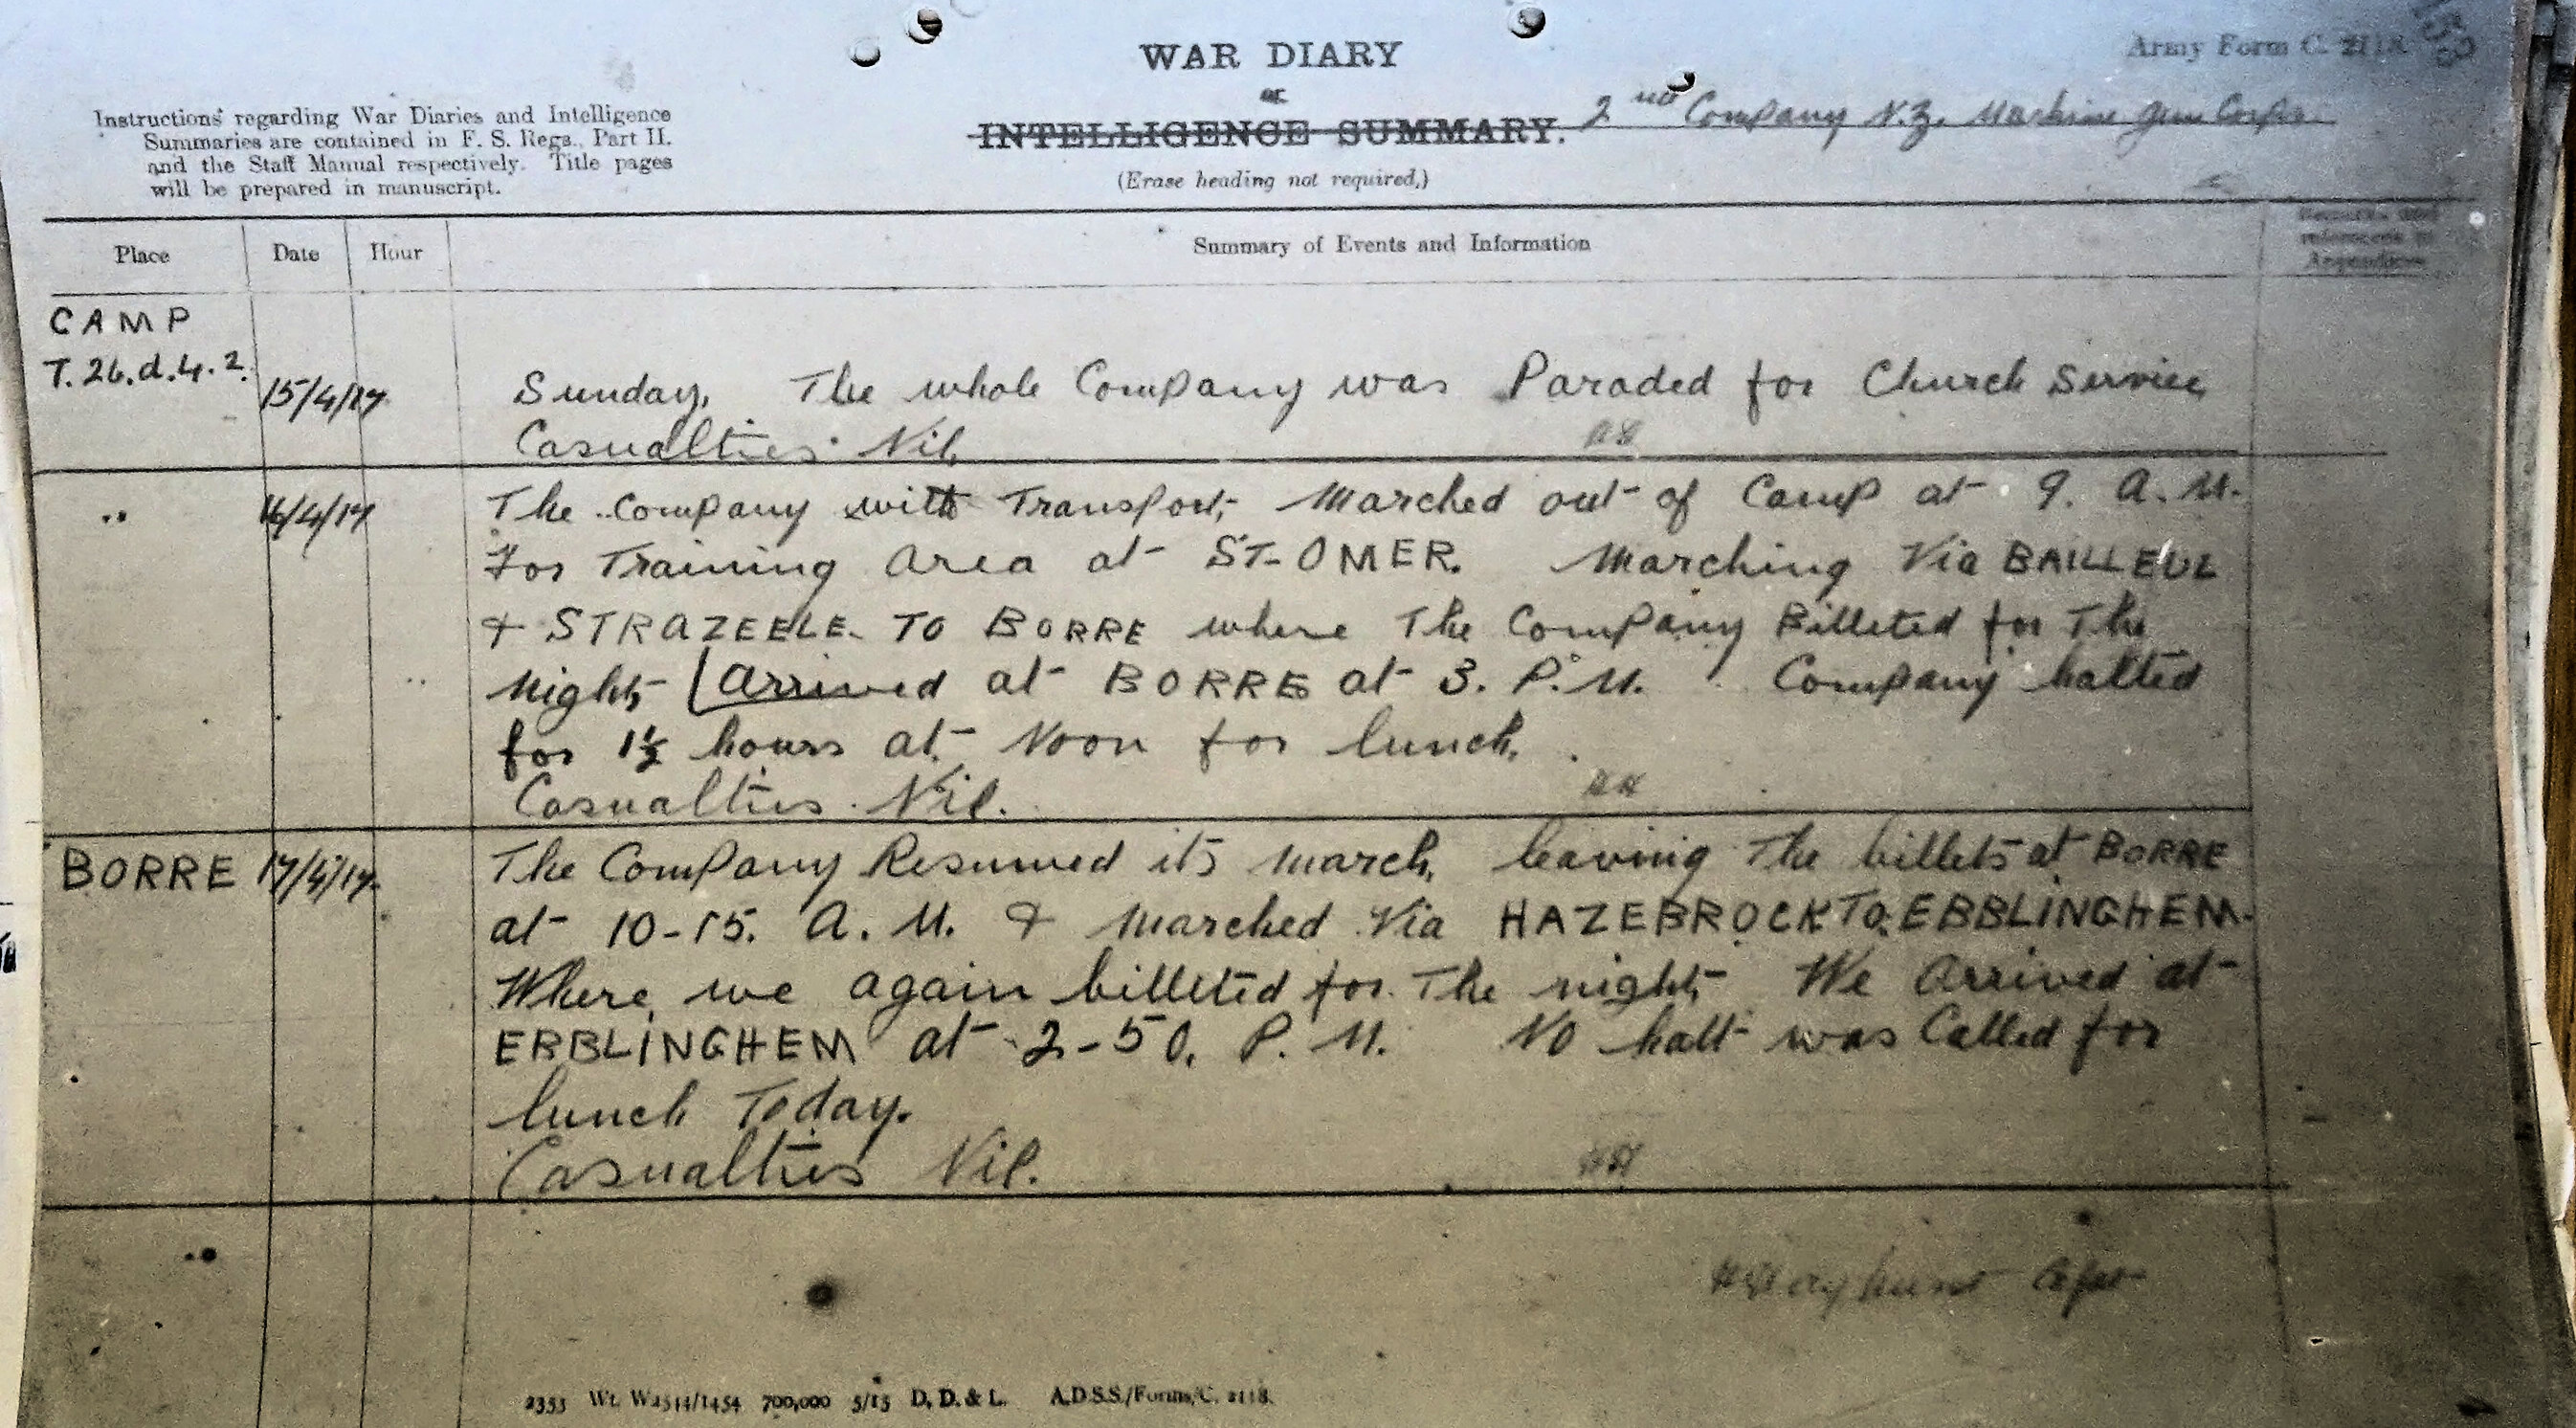 WAR DIARY
Army Form C. 2118.
or
INTELLIGENCE SUMMARY.
2nd Company N.Z. Machine Gun Corps.
(Erase heading not required.)
Instructions regarding War Diaries and Intelligence
Summaries are contained in F. S. Regs., Part II.
and the Staff Manual respectively. Title pages
will be prepared in manuscript.
Place
Date
Hour
Summary of Events and Information
Remarks and
references to
Appendices
CAMP
T.26.d.4.2.
15/4/17
Sunday, The whole Company was Paraded for Church Service
Casualties Nil.
" 16/4/17
The Company with Transport, Marched out of Camp at 9. A.M.
For Training Area at ST-OMER. Marching Via BAILLEUL
& STRAZEELE TO BORRE where The Company Billeted for The
Night, (Arrived at BORRE at 3. P.M. Company halted
for 1½ hours at Noon for lunch.
Casualties Nil.
BORRE 17/4/17
The Company Resumed its March, leaving The billets at BORRE
at 10-15. A.M. & Marched Via HAZEBROCK TO EBBLINGHEM.
Where we again billeted for The night, We Arrived at
EBBLINGHEM at 2-50. P.M. No halt was Called for
lunch Today.
Casualties Nil.
Capt
2353 Wt. W2514/1454 700,000 5/15 D. D. & L. A.D.S.S./Forms/C. 2118.